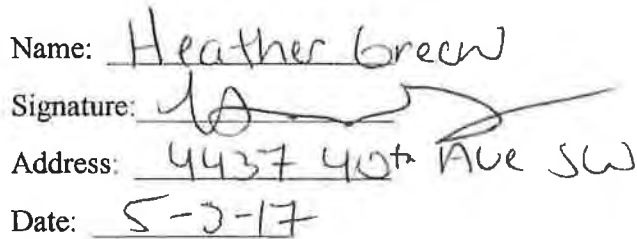 Name: Heather Green
Signature:
Address: 4437 40th Ave SW
Date: 5-3-17